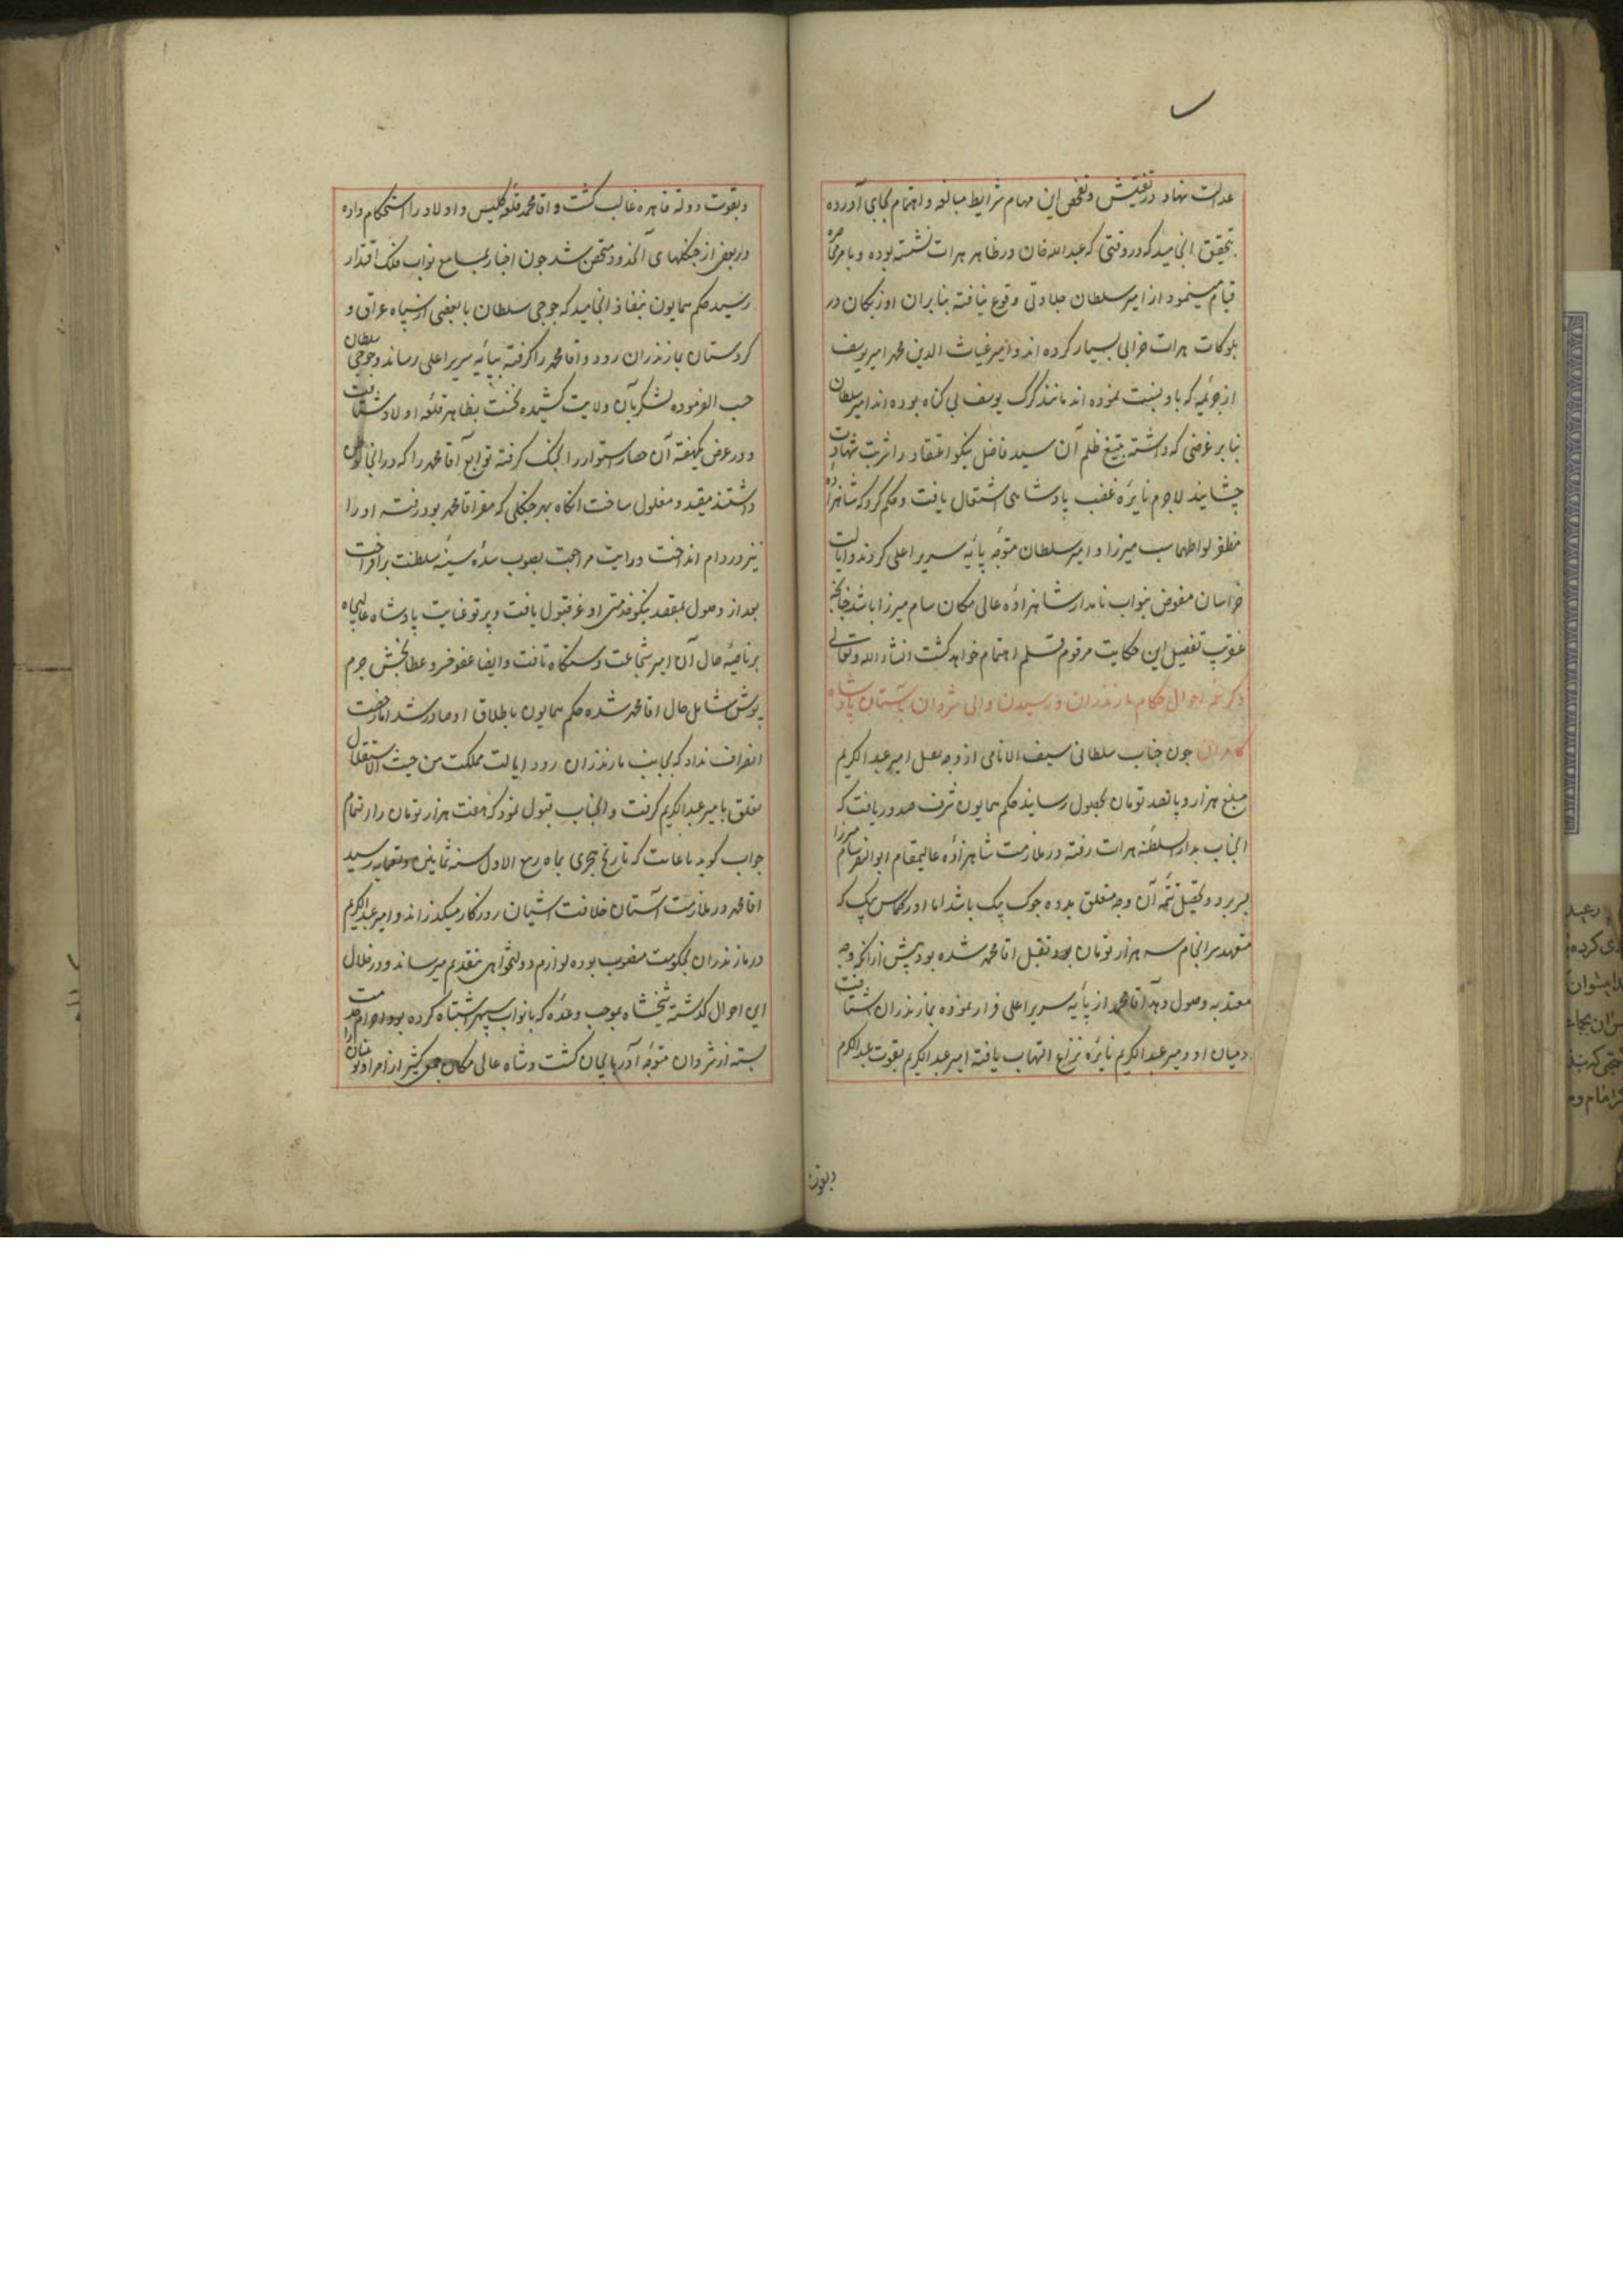 عدالت نهاد در تفتیش و تفحص این مهام شرایط مبالغه و اهتمام بجای آورده
بتحقیق انجامید که در وقتی که عبدالله خان در ظاهر هرات نشسته بوده و بامر محاصره
قیام مینمود از امیر سلطان جلادتی وقوع نیافته بنابران اوزبکان در
بلوکات هرات خرابی بسیار کرده اند و امیر غیاث الدین محمد امیر یوسف
از جریمه که باو نسبت نموده اند مانند گرگ یوسف بی گناه بوده اند امیر سلطان
بنابر غرضی که داشته بتیغ ظلم آن سید فاضل نیکو اعتقاد را شربت شهادت
چشانیده لاجرم نایرهٔ غضب پادشاهی اشتعال یافت و حکم کرد که شاهزادهٔ
مظفر لوا طهماسب میرزا و امیر سلطان متوجه پایهٔ سریر اعلی کردند و ایالت
خراسان مفوض بنواب نامدار شاهزادهٔ عالی مکان سام میرزا باشد چنانچه
عنقریب تفصیل این حکایت مرقوم قلم اهتمام خواهد گشت انشاء الله تعالی
ذکر تتمه احوال حکام مازندران و رسیدن والی شروان بآستان پادشاه
کامران چون جناب سلطانی سیف الانامی از وجه تعمل امیر عبدالکریم
مبلغ هزار و پانصد تومان بحصول رسانید حکم همایون شرف صدور یافت که
آنجناب بدار السلطنه هرات رفته در ملازمت شاهزادهٔ عالیمقام ابوالنصر سام میرزا
بسر برد و تحصیل تتمه آن وجه متعلق بدده جوک بیک باشد اما اورکماس بیک که
متعهد سرانجام سه هزار تومان بود و تقبل اقا محمد شده بود پیش از آنکه وجه
معتد به وصول دهد آقا محمد از پایه سریر اعلی فرار نموده بمازندران شتافت
و میان او و میر عبدالکریم نایرهٔ نزاع التهاب یافته امیر عبدالکریم بقوت عبدالکرم
وبقوت
وبقوت دولة قاهره غالب گشت و اقا محمد قلعه کلیس و اولاد را استحکام داده
در بعضی از جنگلهای آنحدود متحصن شد چون اخبار بمسامع نواب فلک اقتدار
رسید حکم همایون بنفاذ انجامید که جوجی سلطان با بعضی از سپاه عراق و
کردستان بمازندران رود و اقا محمد را گرفته بپایه سریر اعلی رساند و جوجی سلطان
حسب الفرموده لشکر بآن ولایت کشیده نخست بظاهر قلعه اولاد شتافت
و در عرض یکهفته آن حصار استوار را بجنگ گرفته توابع آقا محمد را که در انجا
داشتند مقید و مغلول ساخت انگاه بهر جنگلی که مفر اقا محمد بود رفته او را
نیز در دام انداخت و رایت مراجعت بصوب سدهٔ سنیهٔ سلطنت برافراخت
بعد از وصول بمقصد نیکو خدمتی او عز قبول یافت و پرتو عنایت پادشاه عالیجاه
بر ناصیهٔ حال آن امیر شجاعت دستگاه تافت و ایضا عفو خسرو عطابخش جرم
پوش شامل حال اقا محمد شده حکم همایون باطلاق او صادر شد اما رخصت
انصراف نداد که بجانب مازندران رود ایالت مملکت من حیث الاستقلال
تعلق بامیر عبدالکریم گرفت و انجناب قبول نمود که هفت هزار تومان را بتمام
جواب گوید تا غایت که تاریخ هجری بماه ربیع الاول سنه ثمانین وتسعمایه رسید
اقا محمد در ملازمت آستان خلافت اشیان روزگار میگذراند و امیر عبدالکریم
در مازندران بحکومت منصوب بوده لوازم دولتخواهی بتقدیم میرساند و در خلال
این احوال گذشته شیخشاه بموجب وعده که با نواب سپهر اشتباه کرده بود احرام خدمت
بسته از شروان متوجه آذربایجان گشت و شاه عالی مکان جمعی کثیر از امرا و نوئینان را